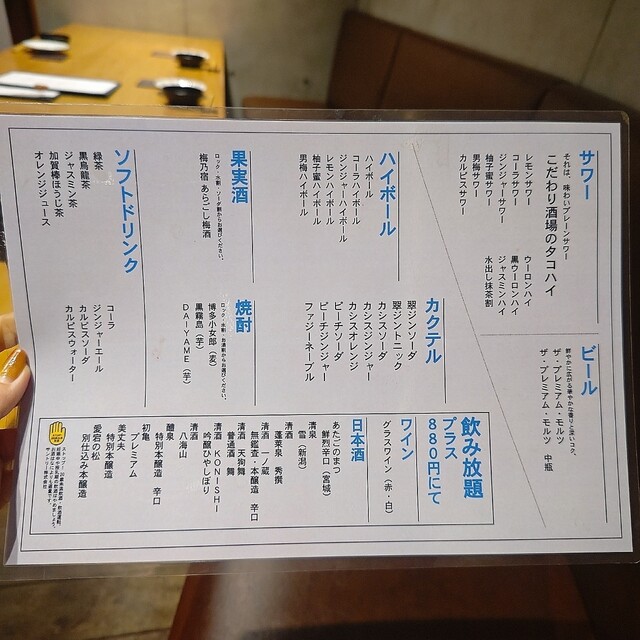 サワー
それは、味わいプレーンサワー
こだわり酒場のタコハイ
レモンサワー
コーラサワー
ジンジャーサワー
柚子蜜サワー
男梅サワー
カルピスサワー
ウーロンハイ
黒ウーロンハイ
ジャスミンハイ
水出し抹茶割
ビール
ザ・プレミアム・モルツ
ザ・プレミアム・モルツ 中瓶
ハイボール
ハイボール
コーラハイボール
ジンジャーハイボール
レモンハイボール
柚子蜜ハイボール
男梅ハイボール
カクテル
翠ジンソーダ
翠ジントニック
カシスソーダ
カシスジンジャー
カシスオレンジ
ピーチソーダ
ピーチジンジャー
ファジーネーブル
果実酒
ロック・水割・ソーダ割からお選びください。
梅乃宿 あらごし梅酒
焼酎
ロック・水割・お湯割からお選びください。
博多小女郎（麦）
黒霧島（芋）
DAIYAME（芋）
ソフトドリンク
緑茶
黒烏龍茶
ジャスミン茶
加賀棒ほうじ茶
オレンジジュース
コーラ
ジンジャーエール
カルピスソーダ
カルピスウォーター
飲み放題
プラス
880円にて
ワイン
グラスワイン（赤・白）
日本酒
あたごのまつ
鮮烈辛口（宮城）
清泉
雪（新潟）
清酒
蓬莱泉 秀撰
清酒 一ノ蔵
無鑑査・本醸造 辛口
清酒 天狗舞
普通酒 舞
清酒 KONISHI
吟醸ひやしぼり
清酒
八海山
醴泉
特別本醸造 辛口
初亀
プレミアム
美丈夫
特別本醸造
愛宕の松
別仕込み本醸造